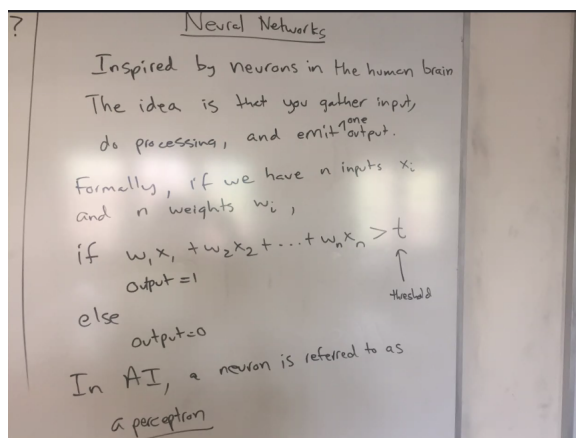 ?
Neural Networks
Inspired by neurons in the human brain
The idea is that you gather input,
do processing, and emit one output.
Formally, if we have n inputs xi
and n weights wi,
if w1x1 + w2x2 + ... + wnxn > t
output = 1
threshold
else
output = 0
In AI, a neuron is referred to as
a perceptron